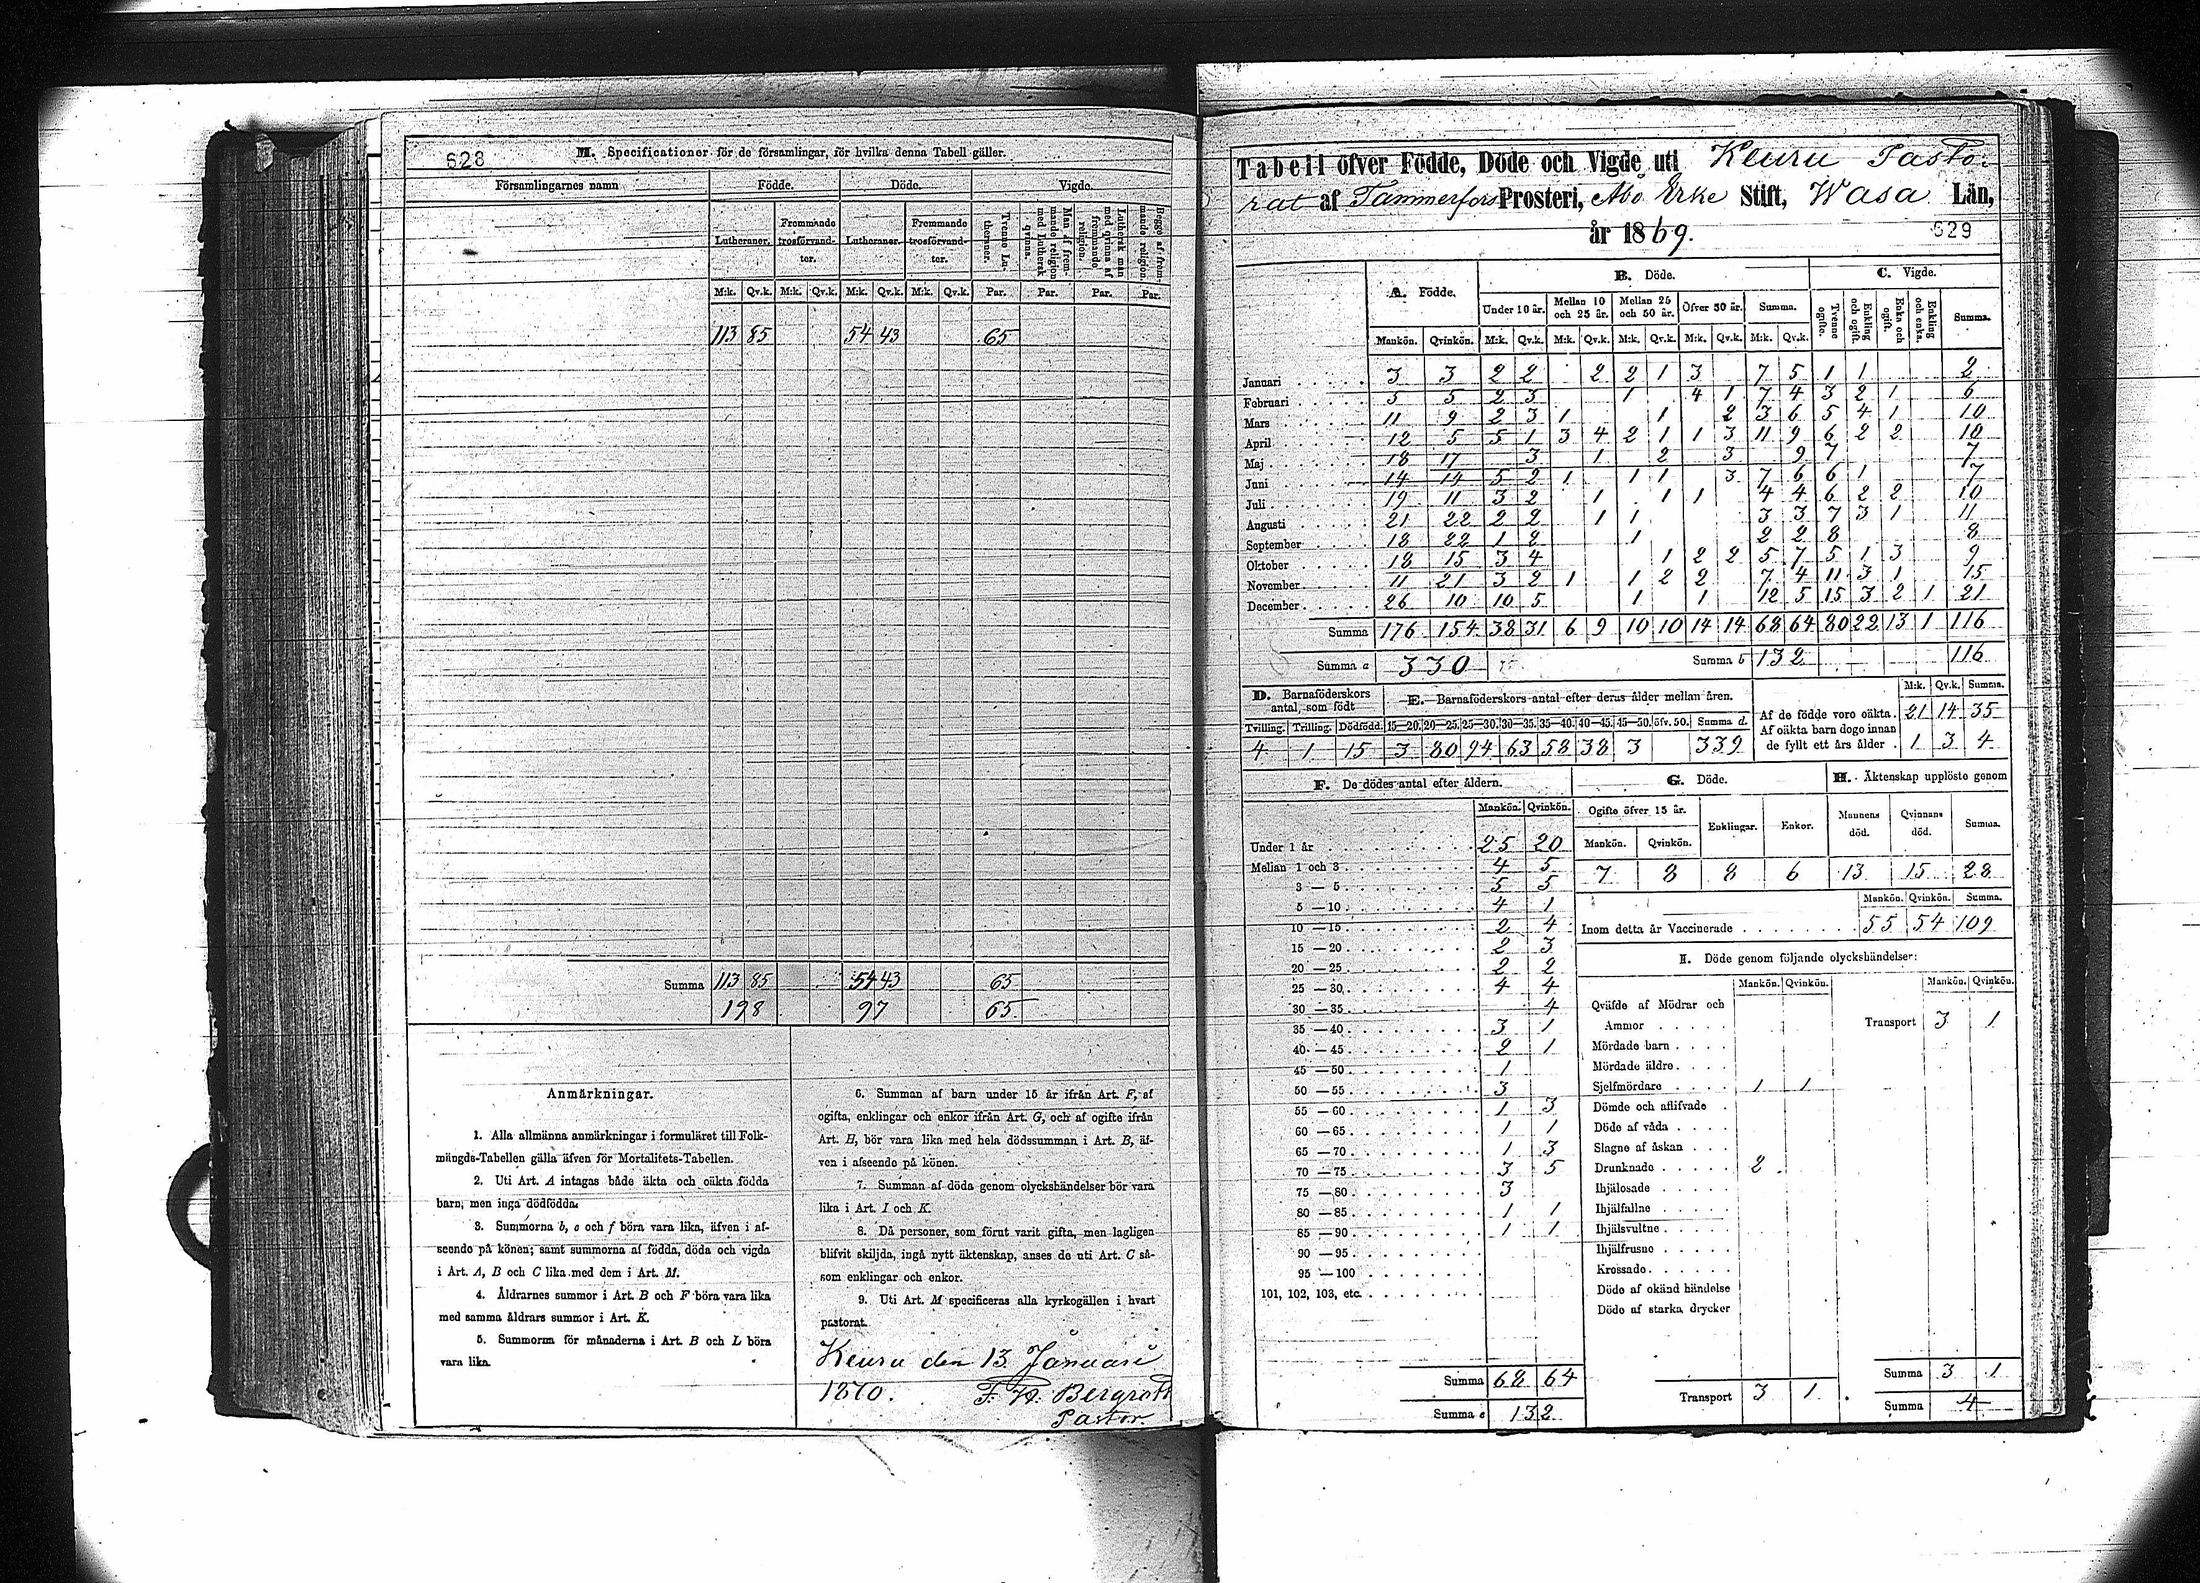 628
M. Specificationer för de församlingar, för hvilka denna Tabell gäller.
Församlingarnes namn Födde. Döde. Vigde.
Lutheraner. Fremmande trosförvandter. Lutheraner. Fremmande trosförvandter. Trenne Lutheraner. Man af fremmande religion med Luthersk qvinna. Luthersk man med qvinna af fremmande religion. Begge af fremmande religion.
M:k. Qv.k. M:k. Qv.k. M:k. Qv.k. M:k. Qv.k. Par. Par. Par. Par.
113 85 54 43 65
Summa 113 85 54 43 65
198 97 65
Anmärkningar.
1. Alla allmänna anmärkningar i formuläret till Folk-
mängds-Tabellen gälla äfven för Mortalitets-Tabellen.
2. Uti Art. A intagas både äkta och oäkta födda
barn, men inga dödfödda.
3. Summorna b, e och f böra vara lika, äfven i af-
seende på könen; samt summorna af födda, döda och vigda
i Art. A, B och C lika med dem i Art. M.
4. Åldrarnes summor i Art. B och F böra vara lika
med samma åldrars summor i Art. K.
5. Summorna för månaderna i Art. B och L böra
vara lika.
6. Summan af barn under 15 år ifrån Art. F, af
ogifta, enklingar och enkor ifrån Art. G, och af ogifte ifrån
Art. H, bör vara lika med hela dödssumman i Art. B, äf-
ven i afseende på könen.
7. Summan af döda genom olyckshändelser bör vara
lika i Art. I och K.
8. Då personer, som förut varit gifta, men lagligen
blifvit skiljda, ingå nytt äktenskap, anses de uti Art. C så-
som enklingar och enkor.
9. Uti Art. M specificeras alla kyrkogällen i hvart
pastorat.
Keuru den 13 Januari
1870. F. W. Bergroth
Pastor.
Tabell öfver Födde, Döde och Vigde uti Keuru Pasto-
rat af Tammerfors Prosteri, Åbo Erke Stift, Wasa Län,
år 1869.
629
A. Födde. B. Döde. C. Vigde.
Under 10 år. Mellan 10 och 25 år. Mellan 25 och 50 år. Öfver 50 år. Summa. Trenne ogifte. Enkling och ogift. Enka och ogift. Enkling och enka. Summa.
Mankön. Qvinkön. M:k. Qv.k. M:k. Qv.k. M:k. Qv.k. M:k. Qv.k. M:k. Qv.k.
Januari 3 3 2 2 2 2 1 3 7 5 1 1 2
Februari 5 5 2 3 1 4 1 7 4 3 2 1 6
Mars 11 9 2 3 1 1 2 3 6 5 4 1 10
April 12 5 5 1 3 4 2 1 1 3 11 9 6 2 2 10
Maj 18 17 3 1 2 3 9 7 7
Juni 14 14 5 2 1 1 1 3 7 6 6 1 7
Juli 19 11 3 2 1 1 1 4 4 6 2 2 10
Augusti 21 22 2 2 1 1 3 3 7 3 1 11
September 18 22 1 2 1 2 2 8 8
Oktober 18 15 3 4 1 2 2 5 7 5 1 3 9
November 11 21 3 2 1 1 2 2 7 4 11 3 1 15
December 26 10 10 5 1 1 12 5 15 3 2 1 21
Summa 176 154 38 31 6 9 10 10 14 14 68 64 80 22 13 1 116
Summa a 330 Summa b 132 116
D. Barnaföderskors antal, som född E. Barnaföderskors antal efter deras ålder mellan åren.
M:k. Qv.k. Summa.
Tvilling. Trilling. Dödfödd. 15—20. 20—25. 25—30. 30—35. 35—40. 40—45. 45—50. öfv. 50. Summa d.
4 1 15 3 80 94 63 58 38 3 339
Af de födde voro oäkta. 21 14 35
Af oäkta barn dogo innan
de fyllt ett års ålder. 1 3 4
F. De dödes antal efter åldern.
Mankön. Qvinkön.
Under 1 år 25 20
Mellan 1 och 3 4 5
3—5 5 5
5—10 4 1
10—15 2 4
15—20 2 3
20—25 2 2
25—30 4 4
30—35 4
35—40 3 1
40—45 2 1
45—50 1
50—55 3
55—60 1 3
60—65 1 1
65—70 1 3
70—75 3 5
75—80 3
80—85 1 1
85—90 1 1
90—95
95—100
101, 102, 103, etc.
Summa 68 64
Summa e 132
G. Döde. H. Äktenskap upplöste genom
Ogifte öfver 15 år. Enklingar. Enkor. Mannens död. Qvinnans död. Summa.
Mankön. Qvinkön.
7 8 8 6 13 15 28
Mankön. Qvinkön. Summa.
Inom detta år Vaccinerade 55 54 109
I. Döde genom följande olyckshändelser:
Mankön. Qvinkön. Mankön. Qvinkön.
Qväfde af Mödrar och
Ammor
Transport 3 1
Mördade barn
Mördade äldre
Sjelfmördare 1 1
Dömde och aflifvade
Döde af våda
Slagne af åskan
Drunknade 2
Ihjälosade
Ihjälfallne
Ihjälsvultne
Ihjälfrusne
Krossade
Döde af okänd händelse
Döde af starka drycker
Transport 3 1
Summa 3 1
Summa 4